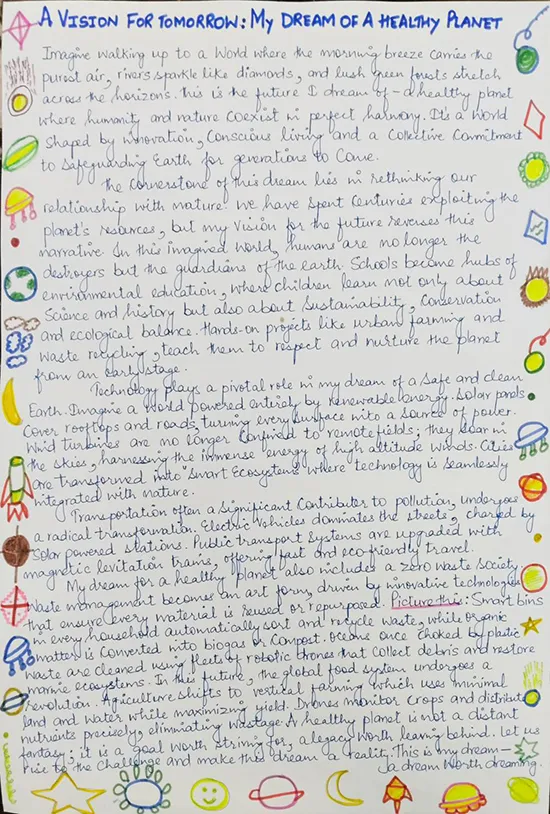 A VISION FOR TOMORROW: MY DREAM OF A HEALTHY PLANET
Imagine walking up to a World where the morning breeze carries the
purest air, rivers sparkle like diamonds, and lush green forests stretch
across the horizons. This is the future I dream of - a healthy planet
where humanity and nature coexist in perfect harmony. It's a World
shaped by innovation, Conscious living and a Collective Commitment
to Safeguarding Earth for generations to Come.
The Cornerstone of this dream lies in rethinking our
relationship with nature. We have spent Centuries exploiting the
planet's resources, but my Vision for the future reverses this
narrative. In this imagined World, humans are no longer the
destroyers but the guardians of the earth. Schools become hubs of
environmental education, where children learn not only about
Science and history but also about Sustainability, Conservation
and ecological balance. Hands-on projects like urban farming and
Waste recycling, teach them to respect and nurture the planet
from an early stage.
Technology plays a pivotal role in my dream of a Safe and clean
Earth. Imagine a World powered entirely by renewable energy. Solar panels
Cover rooftops and roads, turning every surface into a Source of power.
Wind turbines are no longer Confined to remote fields; they soar in
the skies, harnessing the immense energy of high altitude winds. Cities
are transformed into "Smart Ecosystems" where technology is Seamlessly
integrated with nature.
Transportation often a Significant Contributer to pollution, undergoes
a radical transformation. Electric Vehicles dominates the streets, charged by
Solar powered stations. Public transport Systems are upgraded with
magnetic levitation trains, offering fast and eco-friendly travel.
My dream for a healthy planet also includes a Zero Waste Society.
Waste management becomes an art form, driven by innovative technologies
that ensure every material is reused or repurposed. Picture this: Smart bins
in every household automatically sort and recycle waste, while organic
matter is Converted into biogas or Compost. Oceans once Choked by plastic
waste are cleaned using fleets of robotic drones that Collect debris and restore
marine ecosystems. In this future, the global food system undergoes a
revolution. Agriculture shifts to vertical farming which uses minimal
land and Water while maximizing yield. Drones monitor Crops and distribute
nutrients precisely, eliminating wastage. A healthy planet is not a distant
fantasy; it is a goal Worth striving for, a legacy Worth leaving behind. Let us
rise to the Challenge and make this dream a reality. This is my dream-
a dream Worth dreaming.